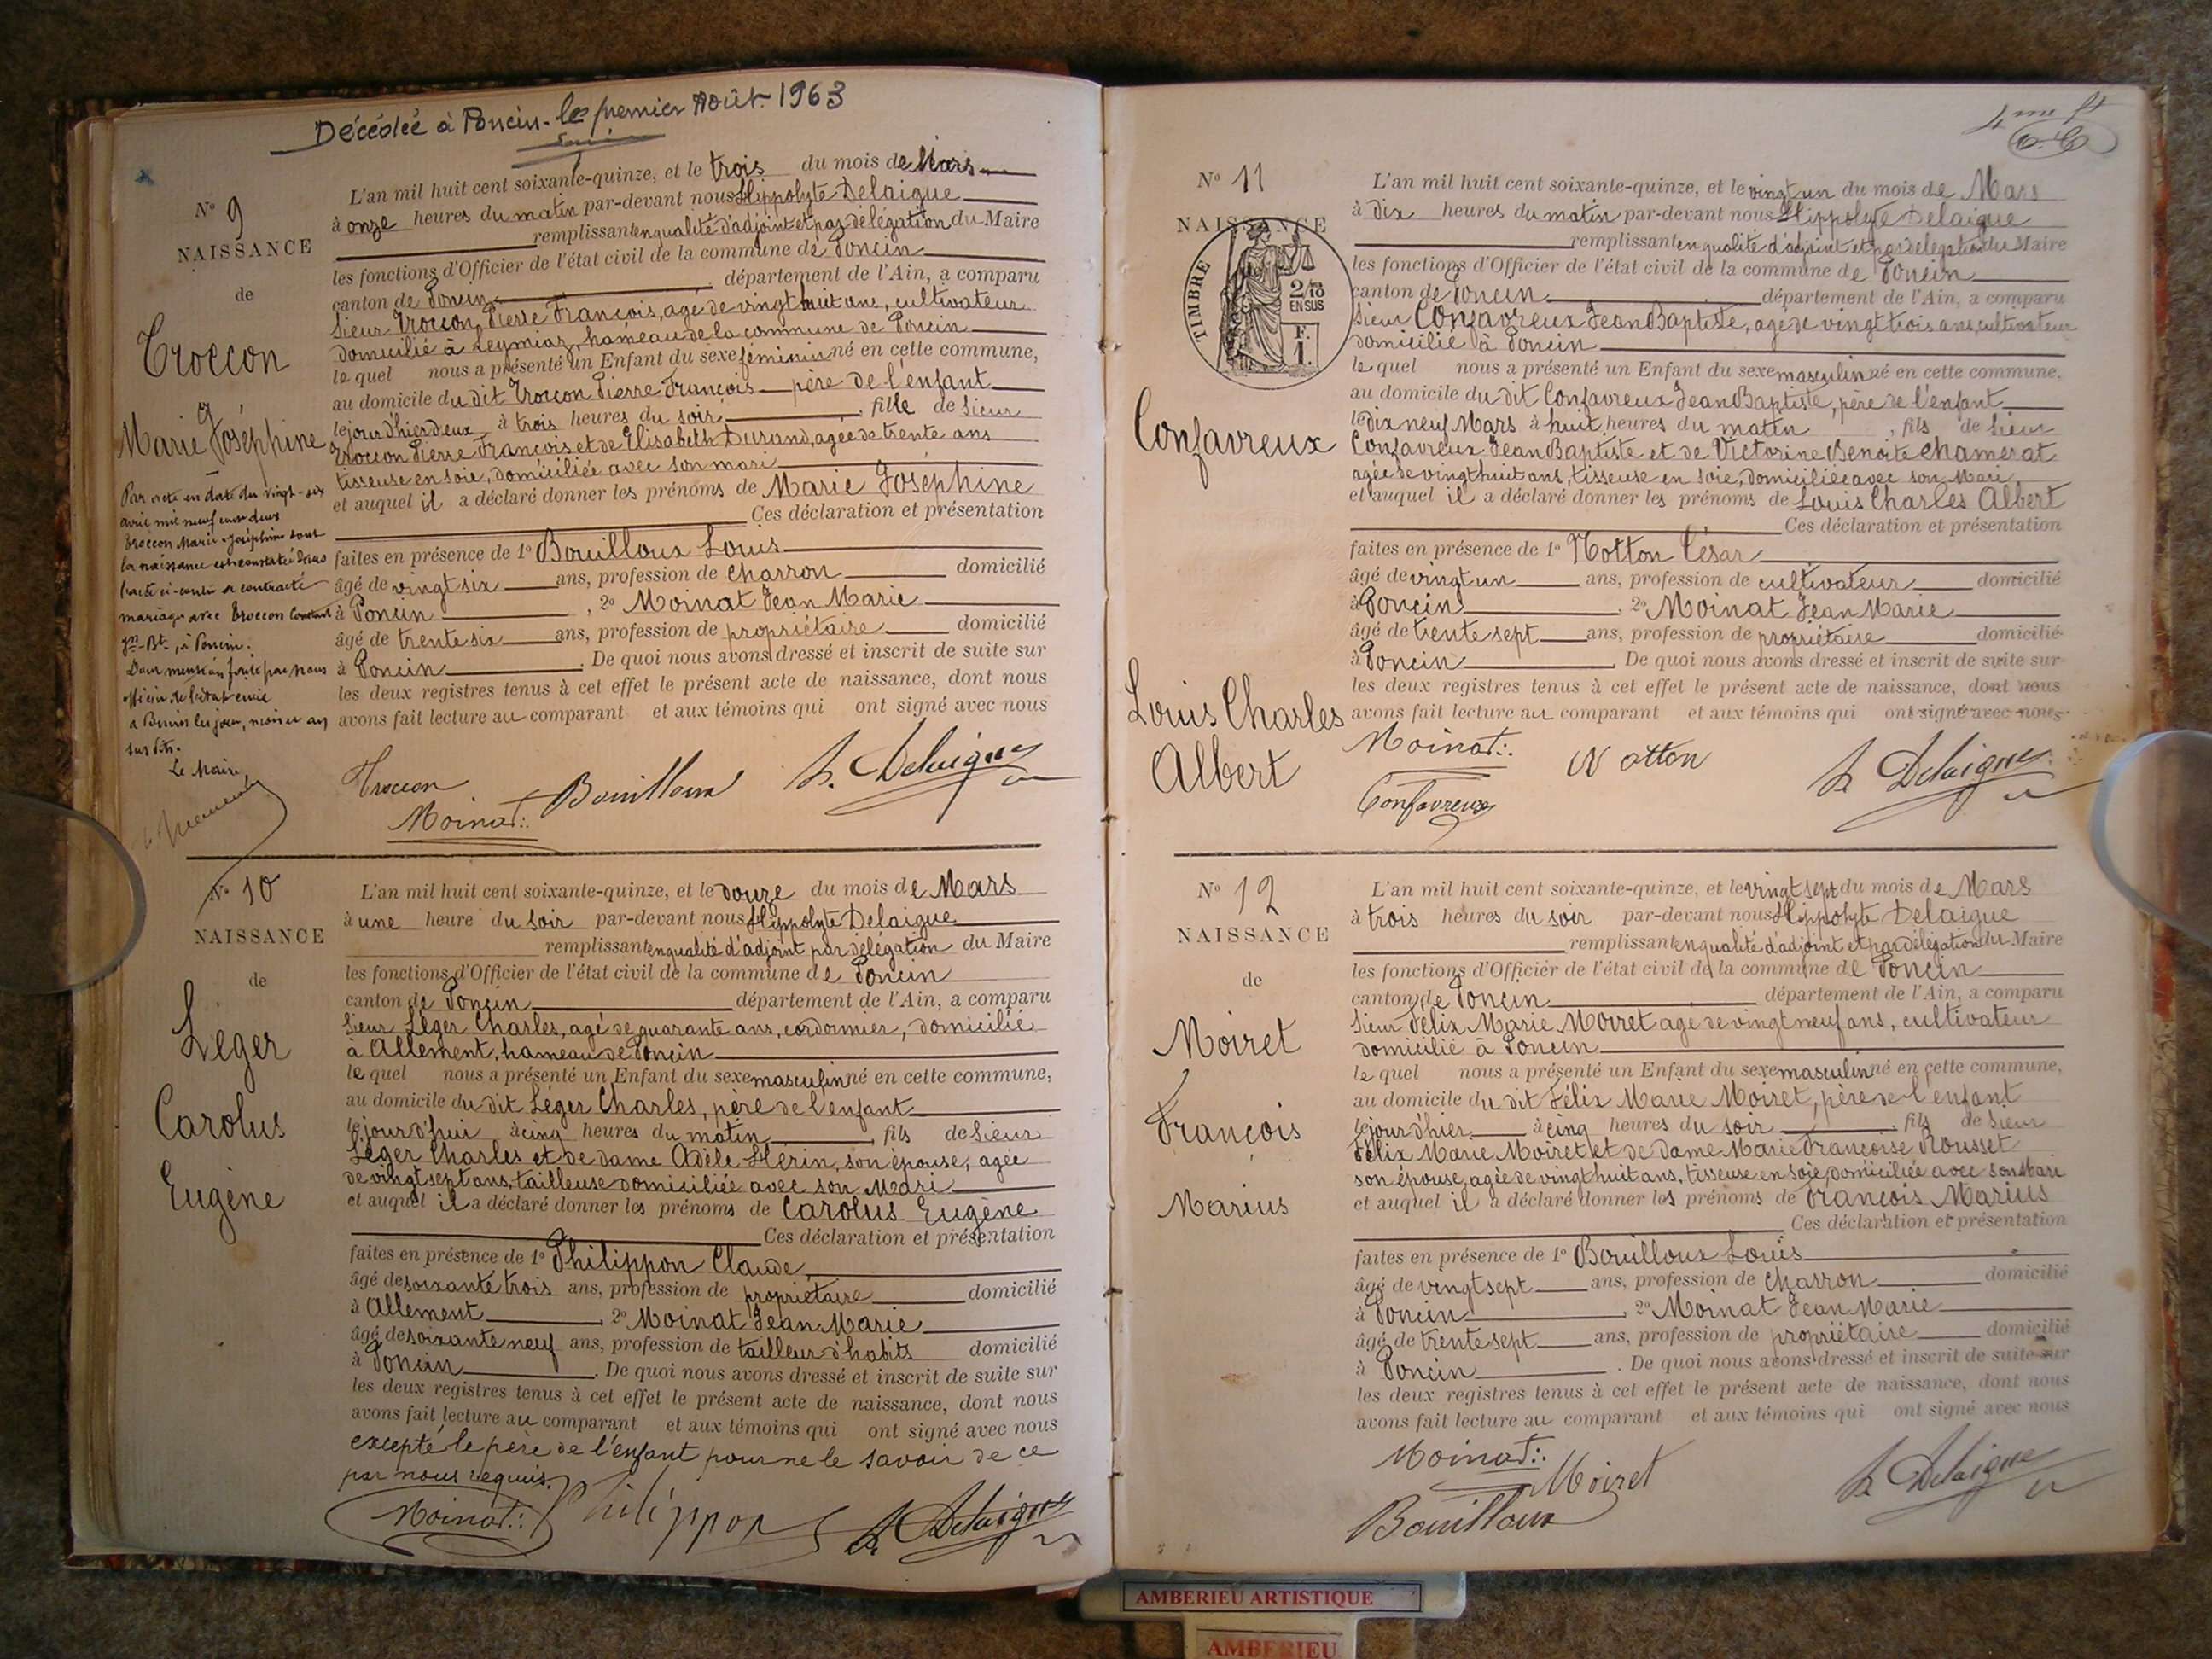 Décédée à Poncin le premier Août 1963
N° 9
NAISSANCE
de
Troccon
Marie Joséphine
Par acte en date du vingt-six
avril mil neuf cent deux
Troccon Marie Joséphine dont
la naissance est constatée dans
l'acte ci-contre a contracté
mariage avec Troccon Constant
Jn Bt, à Poncin.
Dont mention faite par nous
officier de l'état civil
à Poncin les jour, mois et an
sus dits.
Le Maire,
L'an mil huit cent soixante-quinze, et le trois du mois de Mars
à onze heures du matin par-devant nous Hippolyte Delaigue
remplissant en qualité d'adjoint et par délégation du Maire
les fonctions d'Officier de l'état civil de la commune de Poncin
canton de Poncin département de l'Ain, a comparu
Sieur Troccon Pierre François, agé de vingt huit ans, cultivateur
domicilié à Leymiaz, hameau de la commune de Poncin
le quel nous a présenté un Enfant du sexe féminin né en cette commune,
au domicile du dit Troccon Pierre François père de l'enfant
le jour d'hier deux à trois heures du soir, fille de Sieur
Troccon Pierre François et de Elisabeth Durand, agée de trente ans
tisseuse en soie, domiciliée avec son mari
et auquel il a déclaré donner les prénoms de Marie Joséphine
Ces déclaration et présentation
faites en présence de 1° Bouilloux Louis
âgé de vingt six ans, profession de charron domicilié
à Poncin, 2° Moinat Jean Marie
âgé de trente six ans, profession de propriétaire domicilié
à Poncin. De quoi nous avons dressé et inscrit de suite sur
les deux registres tenus à cet effet le présent acte de naissance, dont nous
avons fait lecture au comparant et aux témoins qui ont signé avec nous
Troccon Bouilloux h. Delaigue
Moinat
N° 10
NAISSANCE
de
Léger
Carolus
Eugène
L'an mil huit cent soixante-quinze, et le douze du mois de Mars
à une heure du soir par-devant nous Hippolyte Delaigue
remplissant en qualité d'adjoint par délégation du Maire
les fonctions d'Officier de l'état civil de la commune de Poncin
canton de Poncin département de l'Ain, a comparu
Sieur Léger Charles, agé de quarante ans, cordonnier, domicilié
à Allement, hameau de Poncin
le quel nous a présenté un Enfant du sexe masculin né en cette commune,
au domicile du dit Léger Charles, père de l'enfant
le jour d'hui à cinq heures du matin, fils de Sieur
Léger Charles et de dame Adèle Hérin, son épouse, agée
de vingt sept ans, tailleuse domiciliée avec son Mari
et auquel il a déclaré donner les prénoms de Carolus Eugène
Ces déclaration et présentation
faites en présence de 1° Philippon Claude,
âgé de soixante trois ans, profession de propriétaire domicilié
à Allement, 2° Moinat Jean Marie
âgé de soixante neuf ans, profession de tailleur d'habits domicilié
à Poncin. De quoi nous avons dressé et inscrit de suite sur
les deux registres tenus à cet effet le présent acte de naissance, dont nous
avons fait lecture au comparant et aux témoins qui ont signé avec nous
excepté le père de l'enfant pour ne le savoir de ce
par nous requis.
Moinat Philippon h. Delaigue
4me ft
N° 11
NAISSANCE
TIMBRE
2/10
EN SUS
F.
1.
Confavreux
Louis Charles
Albert
L'an mil huit cent soixante-quinze, et le vingt un du mois de Mars
à dix heures du matin par-devant nous Hippolyte Delaigue
remplissant en qualité d'adjoint et par délégation du Maire
les fonctions d'Officier de l'état civil de la commune de Poncin
canton de Poncin département de l'Ain, a comparu
Sieur Confavreux Jean Baptiste, agé de vingt trois ans, cultivateur
domicilié à Poncin
le quel nous a présenté un Enfant du sexe masculin né en cette commune,
au domicile du dit Confavreux Jean Baptiste, père de l'enfant
le dix neuf Mars à huit heures du matin, fils de Sieur
Confavreux Jean Baptiste et de Victorine Benoite Chamerat
agée de vingt huit ans, tisseuse en soie, domiciliée avec son Mari
et auquel il a déclaré donner les prénoms de Louis Charles Albert
Ces déclaration et présentation
faites en présence de 1° Notton César
âgé de vingt un ans, profession de cultivateur domicilié
à Poncin, 2° Moinat Jean Marie
âgé de trente sept ans, profession de propriétaire domicilié
à Poncin. De quoi nous avons dressé et inscrit de suite sur
les deux registres tenus à cet effet le présent acte de naissance, dont nous
avons fait lecture au comparant et aux témoins qui ont signé avec nous
Moinat Notton h. Delaigue
Confavreux
N° 12
NAISSANCE
de
Moiret
François
Marius
L'an mil huit cent soixante-quinze, et le vingt sept du mois de Mars
à trois heures du soir par-devant nous Hippolyte Delaigue
remplissant en qualité d'adjoint et par délégation du Maire
les fonctions d'Officier de l'état civil de la commune de Poncin
canton de Poncin département de l'Ain, a comparu
Sieur Félix Marie Moiret agé de vingt neuf ans, cultivateur
domicilié à Poncin
le quel nous a présenté un Enfant du sexe masculin né en cette commune,
au domicile du dit Félix Marie Moiret, père de l'enfant
le jour d'hier, à cinq heures du soir, fils de Sieur
Félix Marie Moiret et de dame Marie Françoise Rousset
son épouse, agée de vingt huit ans, tisseuse en soie, domiciliée avec son Mari
et auquel il a déclaré donner les prénoms de François Marius
Ces déclaration et présentation
faites en présence de 1° Bouilloux Louis
âgé de vingt sept ans, profession de charron domicilié
à Poncin, 2° Moinat Jean Marie
âgé de trente sept ans, profession de propriétaire domicilié
à Poncin. De quoi nous avons dressé et inscrit de suite sur
les deux registres tenus à cet effet le présent acte de naissance, dont nous
avons fait lecture au comparant et aux témoins qui ont signé avec nous
Moinat Moiret h. Delaigue
Bouilloux
AMBERIEU ARTISTIQUE
AMBERIEU